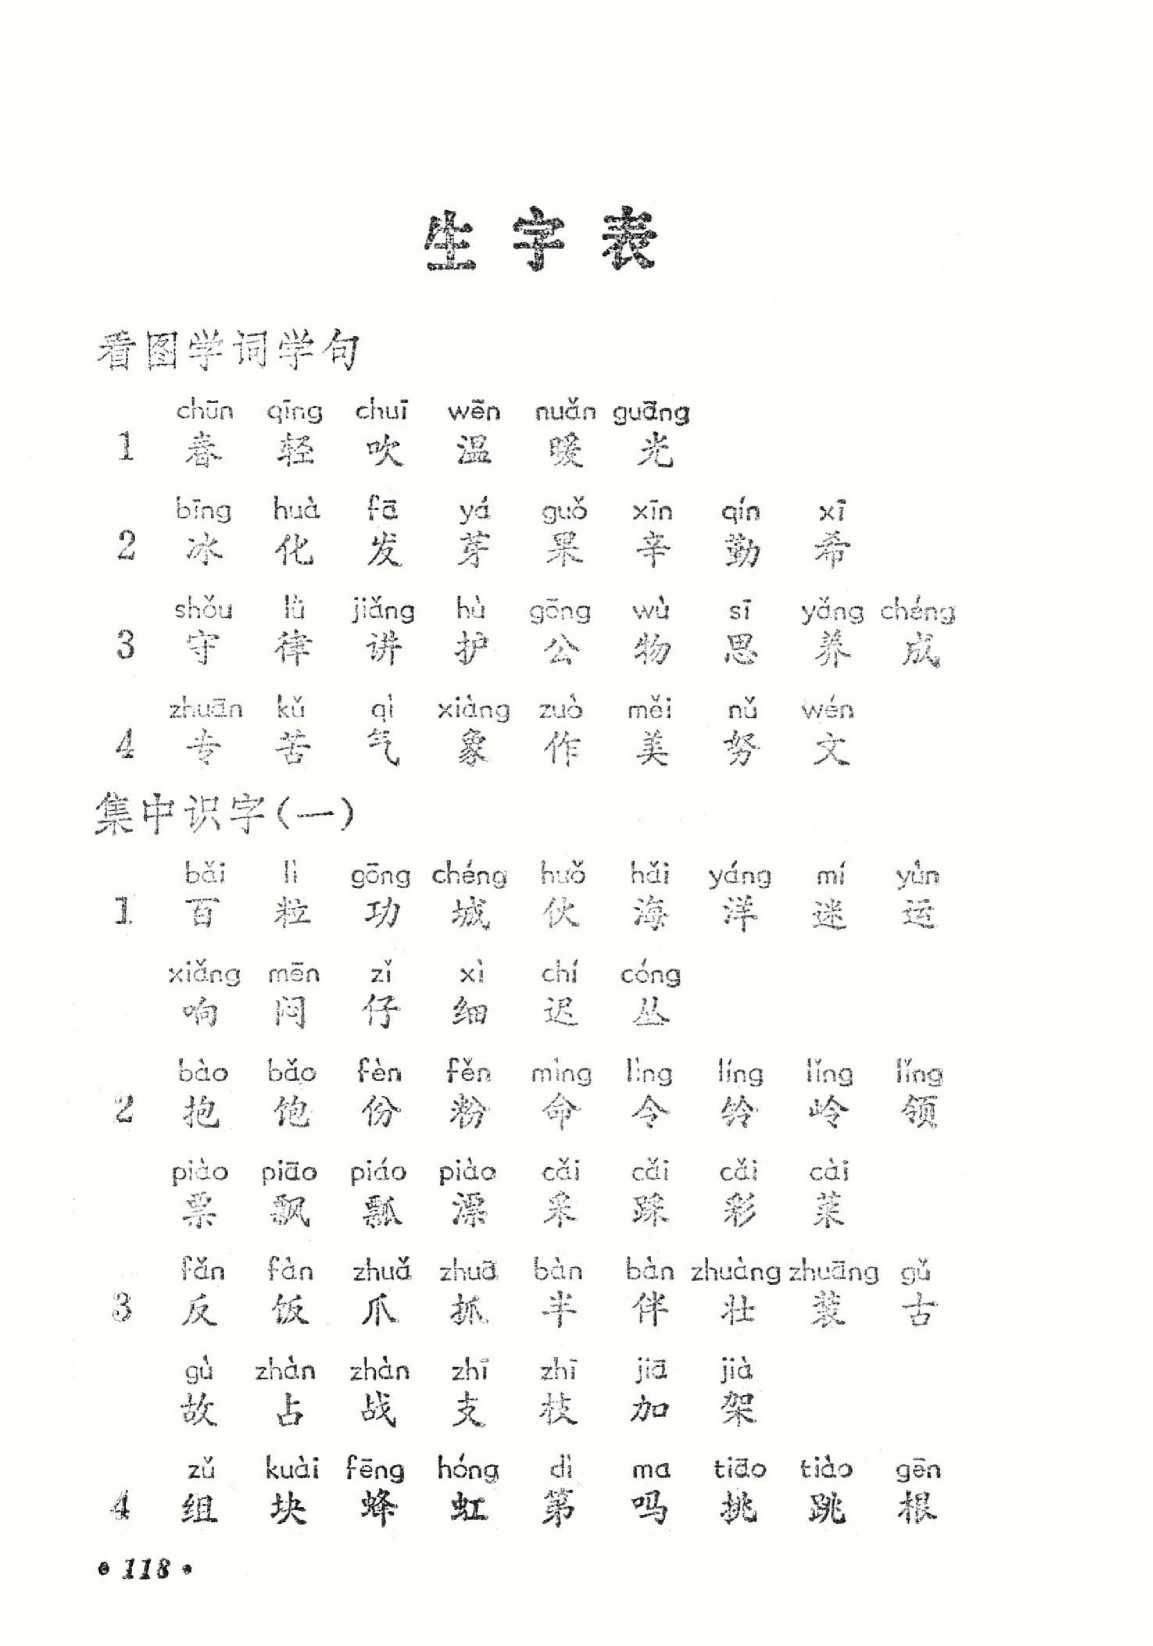 生字表
看图学词学句
chūn qīng chuī wēn nuǎn guāng
1 春 轻 吹 温 暖 光
bīng huà fā yá guǒ xīn qín xī
2 冰 化 发 芽 果 辛 勤 希
shǒu lǜ jiǎng hù gōng wù sī yǎng chéng
3 守 律 讲 护 公 物 思 养 成
zhuān kǔ qì xiàng zuò měi nǔ wén
4 专 苦 气 象 作 美 努 文
集中识字(一)
bǎi lì gōng chéng huǒ hǎi yáng mí yùn
1 百 粒 功 城 伙 海 洋 迷 运
xiǎng mēn zǐ xì chí cóng
响 闷 仔 细 迟 丛
bào bǎo fèn fěn mìng lìng líng lǐng lǐng
2 抱 饱 份 粉 命 令 铃 岭 领
piào piāo piáo piào cǎi cǎi cǎi cài
票 飘 瓢 漂 采 踩 彩 菜
fǎn fàn zhuǎ zhuā bàn bàn zhuàng zhuāng gǔ
3 反 饭 爪 抓 半 伴 壮 装 古
gù zhàn zhàn zhī zhī jiā jià
故 占 战 支 枝 加 架
zǔ kuài fēng hóng dì ma tiāo tiào gēn
4 组 块 蜂 虹 第 吗 挑 跳 根
• 118 •